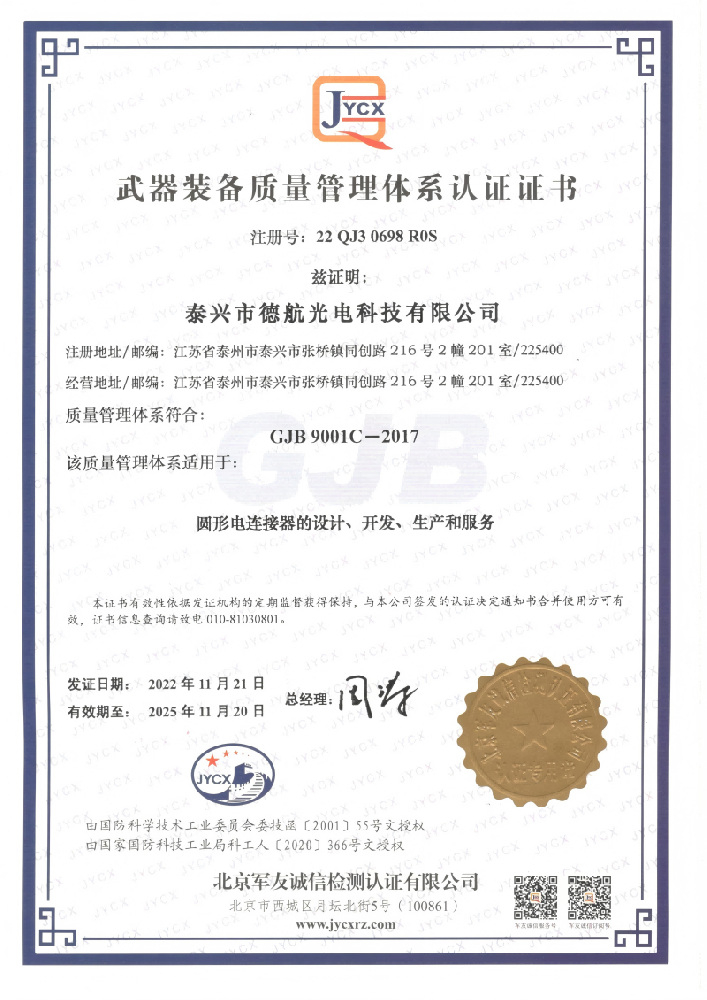 JYCX
武器装备质量管理体系认证证书
注册号：22 QJ3 0698 R0S
兹证明：
泰兴市德航光电科技有限公司
注册地址/邮编：江苏省泰州市泰兴市张桥镇同创路 216 号 2 幢 201 室/225400
经营地址/邮编：江苏省泰州市泰兴市张桥镇同创路 216 号 2 幢 201 室/225400
质量管理体系符合：
GJB
GJB 9001C—2017
该质量管理体系适用于：
圆形电连接器的设计、开发、生产和服务
本证书有效性依据发证机构的定期监督获得保持，与本公司签发的认证决定通知书合并使用方可有
效，证书信息查询请致电 010-81030801。
发证日期： 2022 年 11 月 21 日
有效期至： 2025 年 11 月 20 日
总经理：
JYCX
认证专用章
由国防科学技术工业委员会委技函〔2001〕55号文授权
由国家国防科技工业局科工人〔2020〕366号文授权
北京军友诚信检测认证有限公司
北京市西城区月坛北街5号（100861）
www.jycxrz.com
军友诚信服务号 军友诚信订阅号